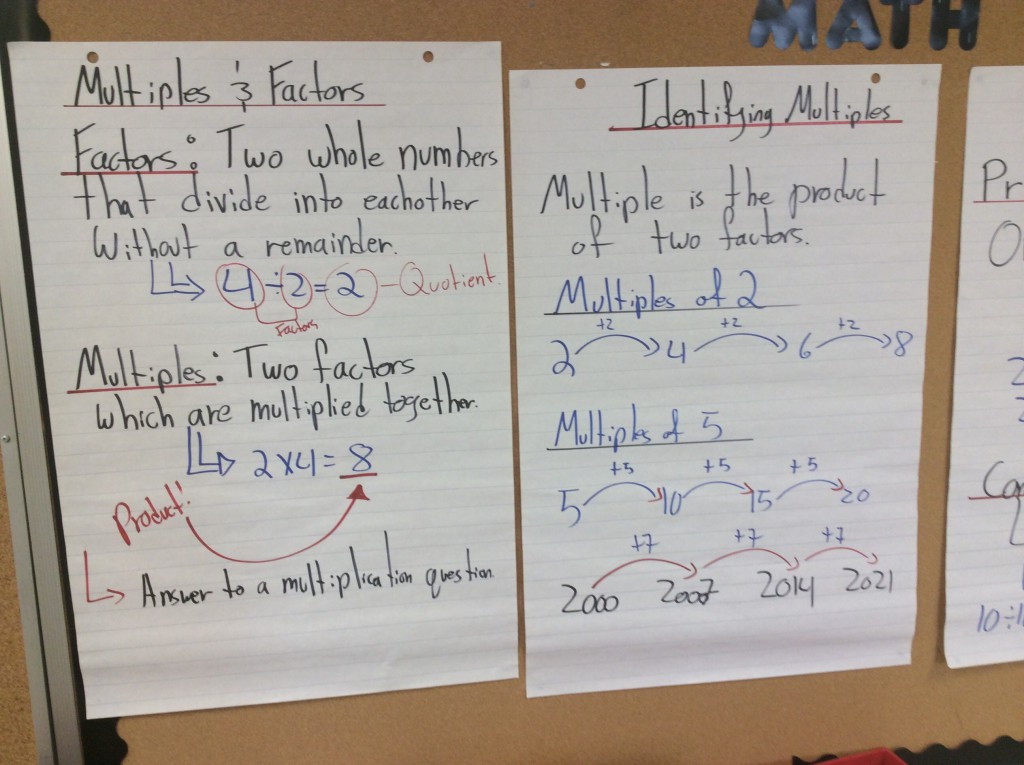 MATH
Multiples & Factors
Factors: Two whole numbers
that divide into eachother
Without a remainder.
4÷2=2 - Quotient.
Factors
Multiples: Two factors
which are multiplied together.
2x4=8
Product:
Answer to a multiplication question.
Identifying Multiples
Multiple is the product
of two factors.
Multiples of 2
+2 +2 +2
2 4 6 8
Multiples of 5
+5 +5 +5
5 10 15 20
+7 +7 +7
2000 2007 2014 2021
Pr
10÷1